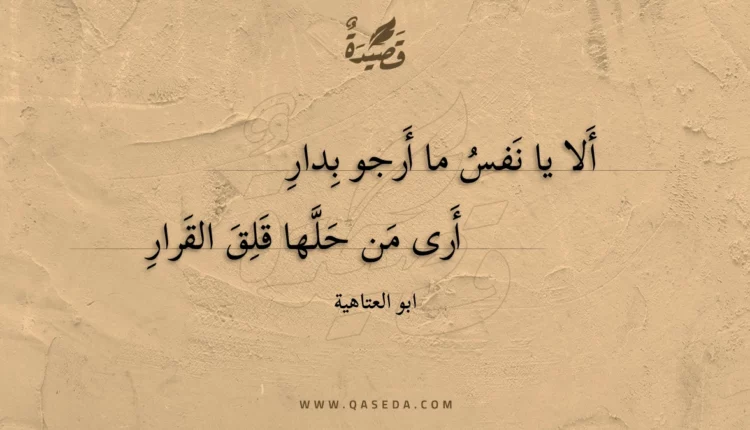 قَصِيدَةٌ
أَلا يا نَفسُ ما أَرجو بِدارِ
أَرى مَن حَلَّها قَلِقَ القَرارِ
ابو العتاهية
WWW.QASEDA.COM